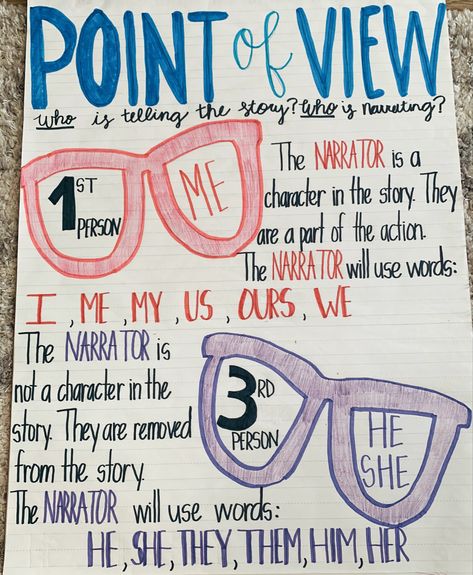 POINT of VIEW
Who is telling the story? Who is narrating?
1ST
PERSON
ME
The NARRATOR is a
character in the story. They
are a part of the action.
The NARRATOR will use words:
I, ME, MY, US, OURS, WE
The NARRATOR is
not a character in the
story. They are removed
from the story.
3RD
PERSON
HE
SHE
The NARRATOR will use words:
HE, SHE, THEY, THEM, HIM, HER